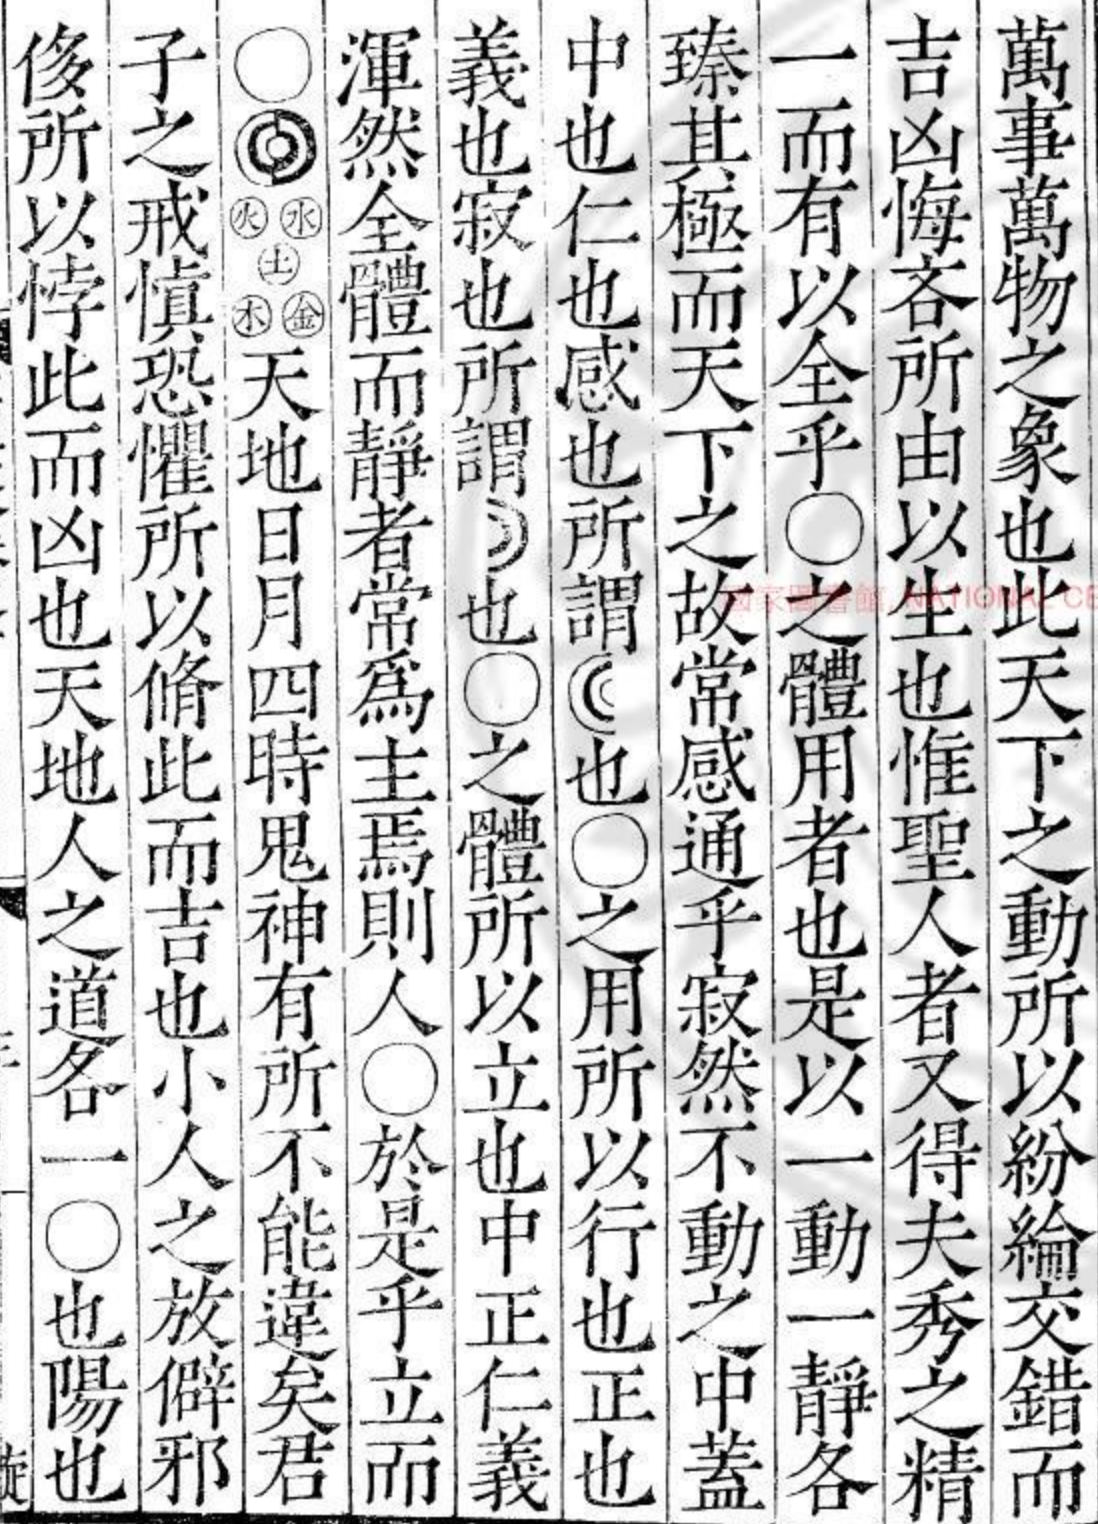 萬事萬物之象也此天下之動所以紛綸交錯而
吉凶悔吝所由以生也惟聖人者又得夫秀之精
一而有以全乎〇之體用者也是以一動一靜各
臻其極而天下之故常感通乎寂然不動之中蓋
中也仁也感也所謂☾也〇之用所以行也正也
義也寂也所謂☽也〇之體所以立也中正仁義
渾然全體而靜者常爲主焉則人〇於是乎立而
〇◎㊌㊋㊏㊎㊍天地日月四時鬼神有所不能違矣君
子之戒慎恐懼所以脩此而吉也小人之放僻邪
侈所以悖此而凶也天地人之道各一〇也陽也
國家圖書館, NATIONAL CE